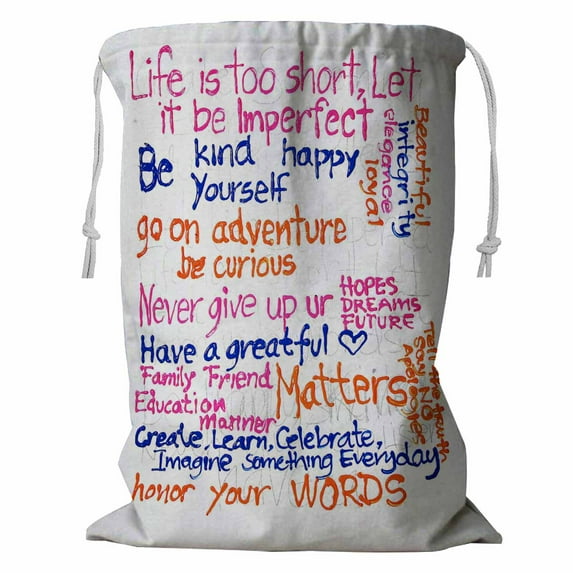 Life is too short, Let
it be Imperfect
Beautiful
integrity
elegance
loyal
Be kind happy
Yourself
go on adventure
be curious
Never give up ur
HOPES
DREAMS
FUTURE
Have a greatful ♡
Family Friend
Education
manner
Matters
Tell the truth
Say NO
Apologies
Create, Learn, Celebrate,
Imagine Something Everyday
honor your WORDS